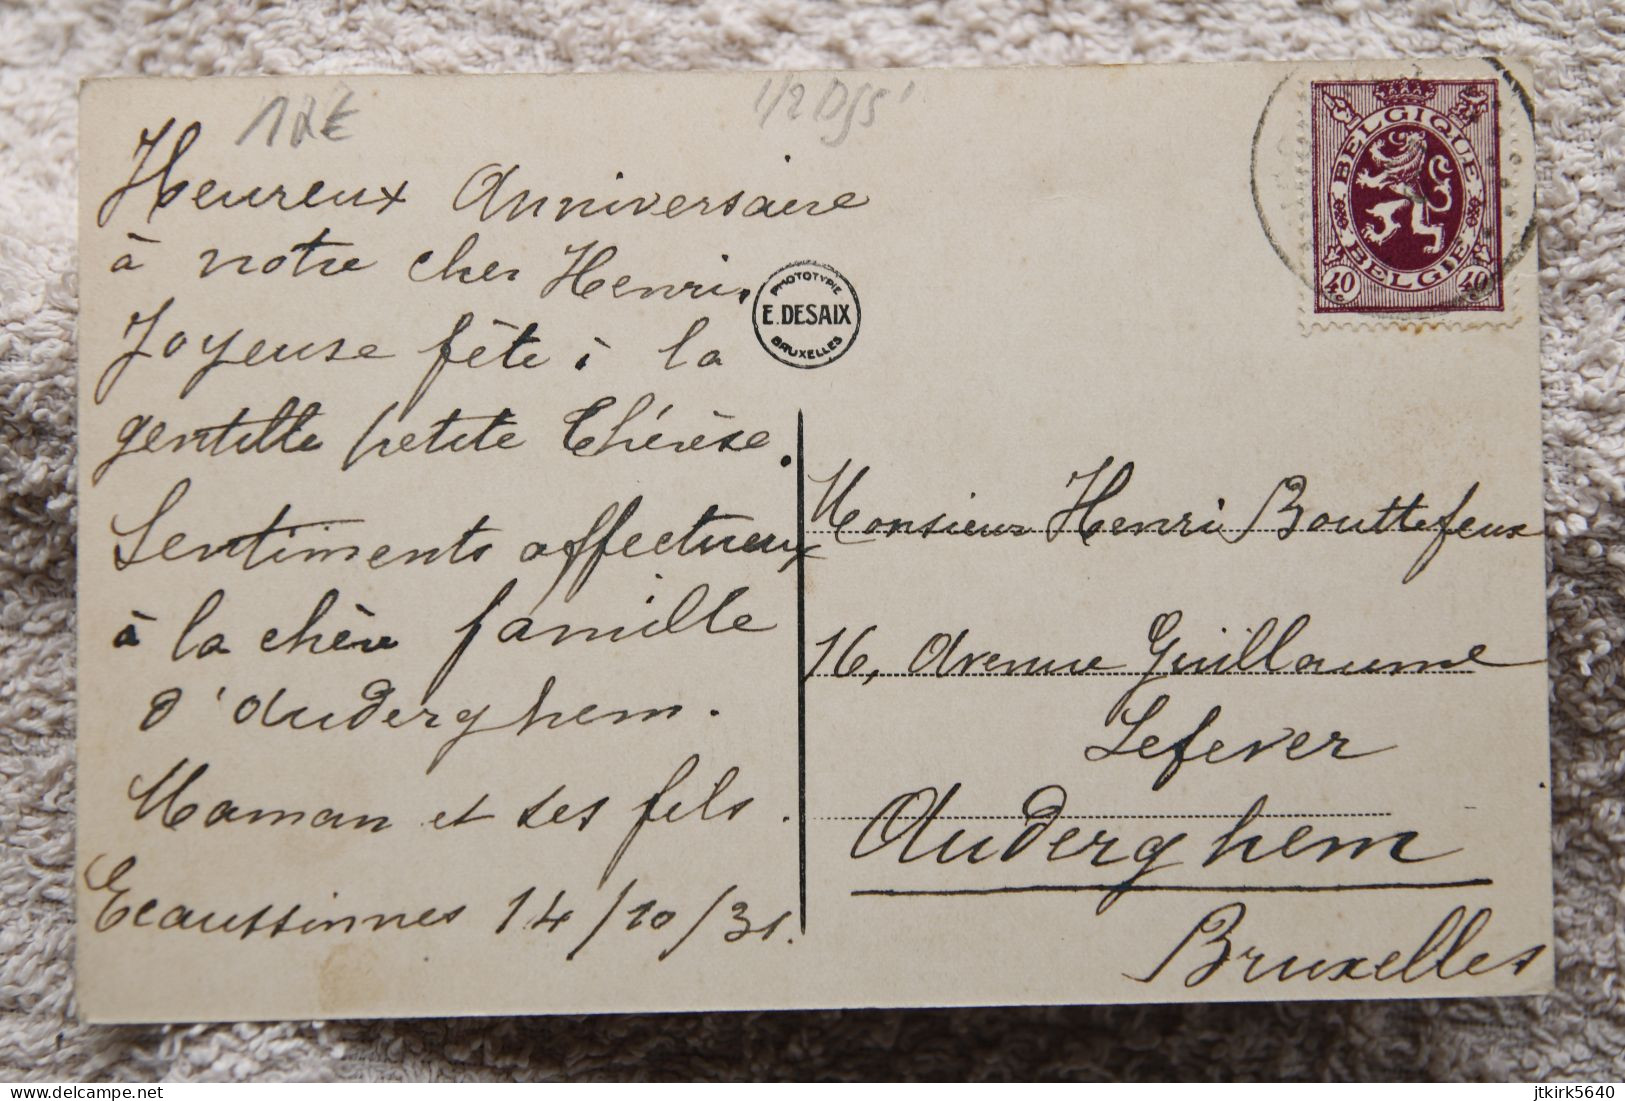 12€
1/2 D
Heureux Anniversaire
à notre cher Henri.
Joyeuse fête à la
gentille petite Thérèse.
Sentiments affectueux
à la chère famille
d'Auderghem.
Maman et ses fils.
Ecaussinnes 14/10/31.
PHOTOTYPIE
E. DESAIX
BRUXELLES
BELGIQUE
BELGIË
40c 40c
Monsieur Henri Bouttefeux
16, Avenue Guillaume
Lefever
Auderghem
Bruxelles
delcampe.net
jtkirk5640